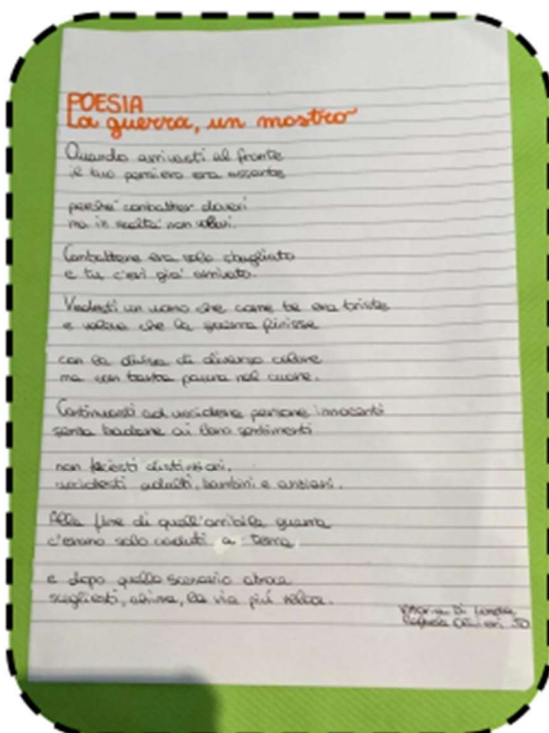 POESIA
La guerra, un mostro
Quando arrivasti al fronte
il tuo pensiero era assente
perché combatter dovevi
ma in realtà non volevi.
Combattere era solo sbagliato
e tu c'eri già arrivato.
Vedesti un uomo che come te era triste
e voleva che la guerra finisse
con la divisa di diverso colore
ma con tanta paura nel cuore.
Continuasti ad uccidere persone innocenti
senza badare ai loro sentimenti
non facesti distinzioni,
uccidesti adulti, bambini e anziani.
Alla fine di quell'orribile guerra
c'erano solo caduti a terra
e dopo quello scenario atroce
scegliesti, ahimè, la via più veloce.